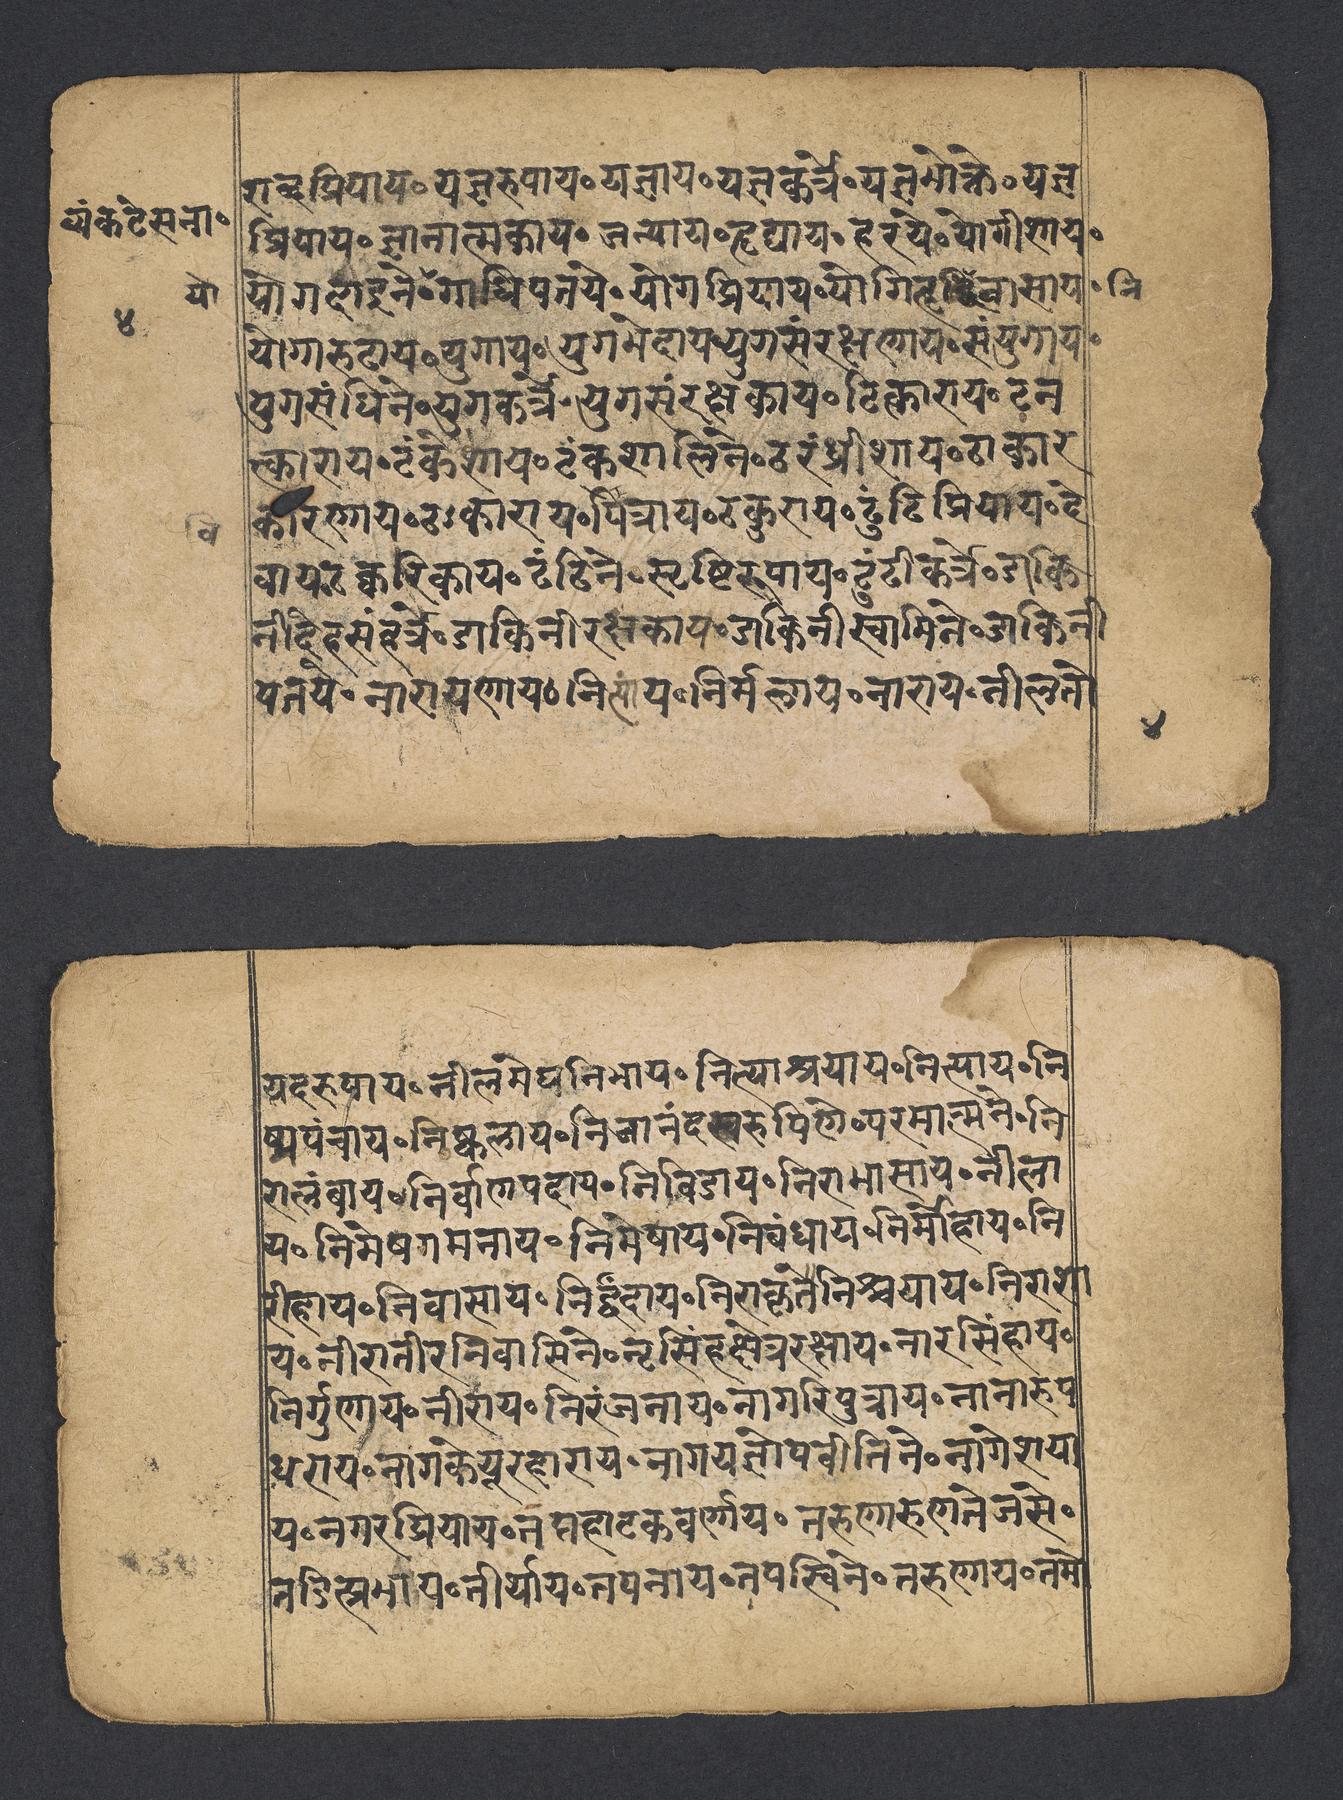 शब्दप्रियाय॰ यज्ञरुपाय॰ यज्ञाय॰ यज्ञकर्त्रे॰ यज्ञभोक्त्रे॰ यज्ञ
व्यंकटेसना॰
प्रियाय॰ ज्ञानात्मकाय॰ जन्याय॰ हृद्याय॰ हरये॰ योगीशाय॰
यो
योगदाइने॰ गाधिपतये॰ योगप्रियाय॰ योगिहृ वासाय॰ नि
४
योगारुढाय॰ युगाय॰ युगभेदाय॰ युगसंरक्षणाय॰ संयुगाय॰
युगसंधिने॰ युगकर्त्रे॰ युगसंरक्षकाय॰ टित्काराय॰ टन
त्काराय॰ टंकेशाय॰ टंकशालिने॰ ठरंध्रीशाय॰ ठाकार
कारणाय॰ ठःकाराय॰ पित्राय॰ ठकुराय॰ ढुंढिप्रियाय॰ दे
वि
वायढक्करिकाय॰ ढंढिने॰ सृष्टिरूपाय॰ ढुंढीकर्त्रे॰ डाकि
नीदेहसंहर्त्रे॰ डाकिनीरक्षकाय॰ डाकिनीस्वामिने॰ डाकिनी
पतये॰ नारायणाय॰ नित्याय॰ निर्मलाय॰ नाराय॰ नीलतो
४
यदरुपाय॰ नीलमेघनिभाय॰ नित्याश्रयाय॰ नित्याय॰ नि
ष्प्रपंचाय॰ निष्कलाय॰ निजानंदस्वरुपिणे॰ परमात्मने॰ नि
रालंबाय॰ निर्वाणपदाय॰ निविडाय॰ निराभासाय॰ नीला
य॰ निमेषगमनाय॰ निमेषाय॰ निबंधाय॰ निर्मोहाय॰ नि
रीहाय॰ निवासाय॰ निर्द्वंदाय॰ निराकृतेनिश्चयाय॰ निराशा
य॰ नीरातीरनिवासिने॰ नृसिंहक्षेत्ररक्षाय॰ नारसिंहाय॰
निर्गुणाय॰ नीराय॰ निरंजनाय॰ नागरिपुत्राय॰ नानारुप
धराय॰ नागकेयूरहाराय॰ नागयज्ञोपवीतिने॰ नागेशया
य॰ नगरप्रियाय॰ तप्तहाटकवर्णाय॰ तरुणारुणतेजसे॰
तडित्प्रभाय॰ तीर्थाय॰ तपनाय॰ तपस्विने॰ तरुणाय॰ तमो